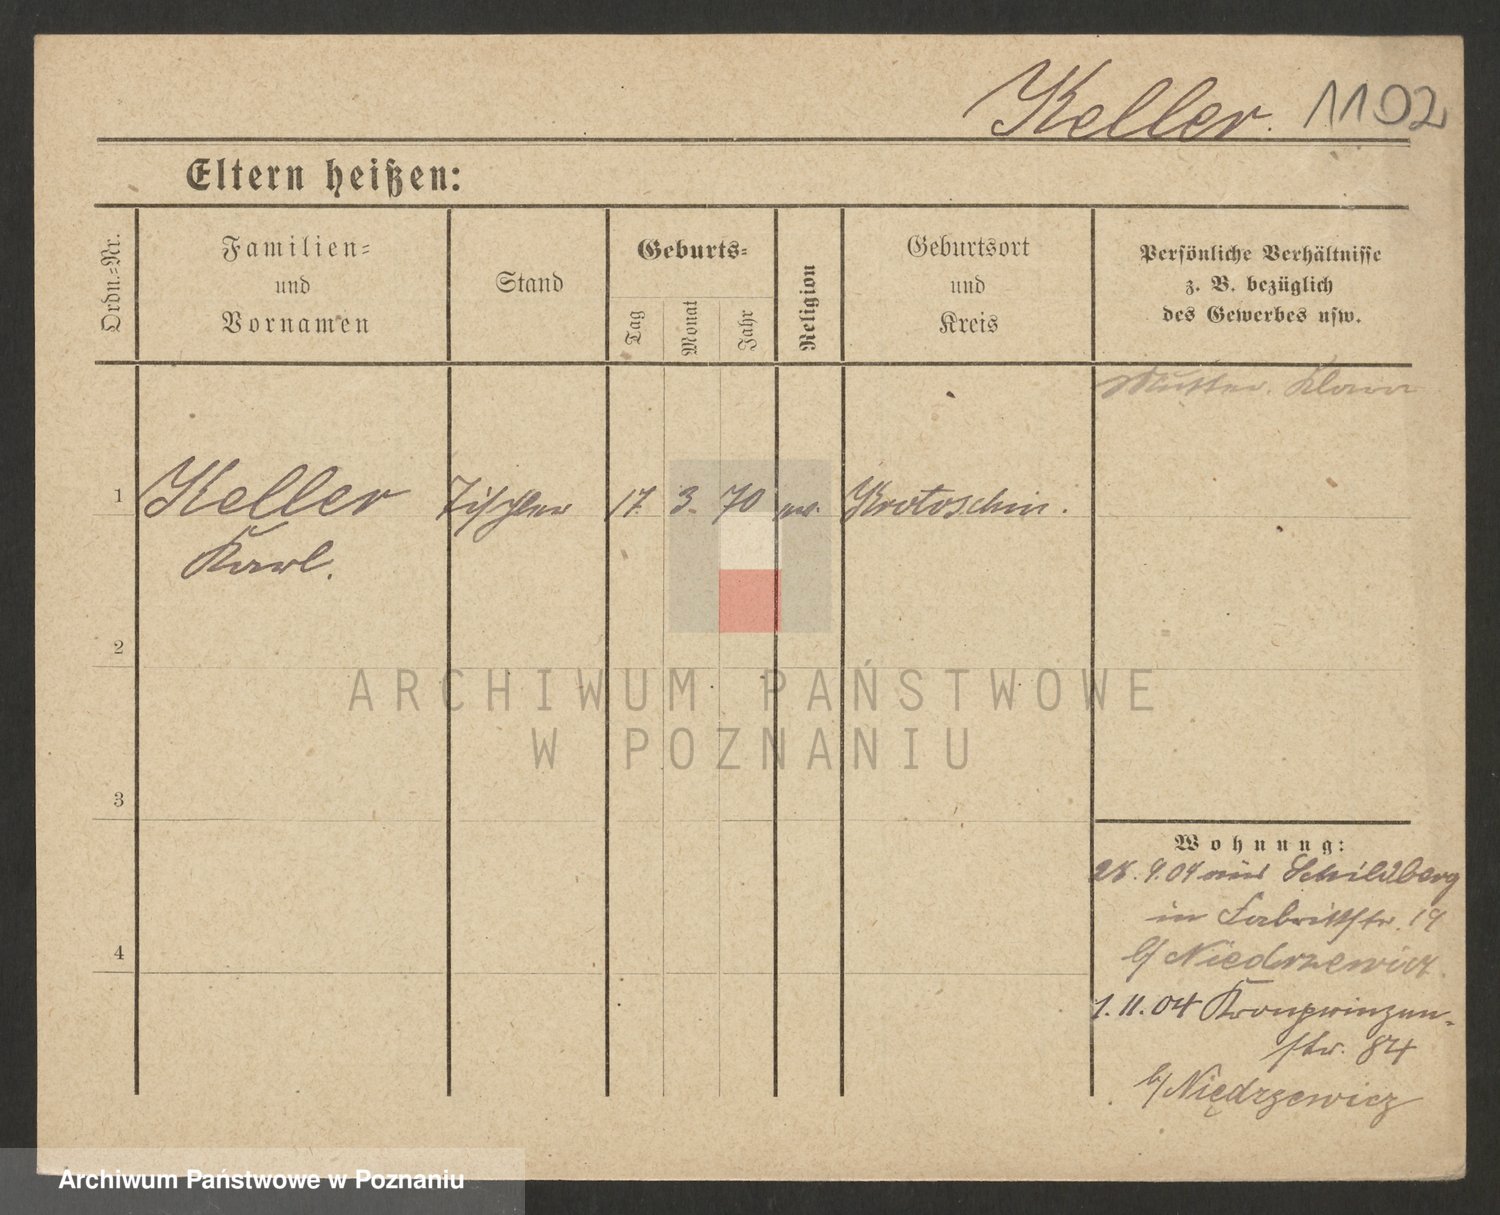 Keller. 1102
Eltern heißen:
Ordn.=Nr.
Familien=
und
Vornamen
Stand
Geburts=
Tag
Monat
Jahr
Religion
Geburtsort
und
Kreis
Persönliche Verhältnisse
z. B. bezüglich
des Gewerbes usw.
Mutter. Klara
1 Keller Tischler 17. 3. 70 Krotoschin.
Karl.
2
3
4
ARCHIWUM PAŃSTWOWE
W POZNANIU
Wohnung:
28. 9. 04 aus Schildberg
in Fabrikstr. 19
b/ Niedrzewicz.
1. 11. 04 Kronprinzen-
str. 84
b/ Niędrzewicz
Archiwum Państwowe w Poznaniu